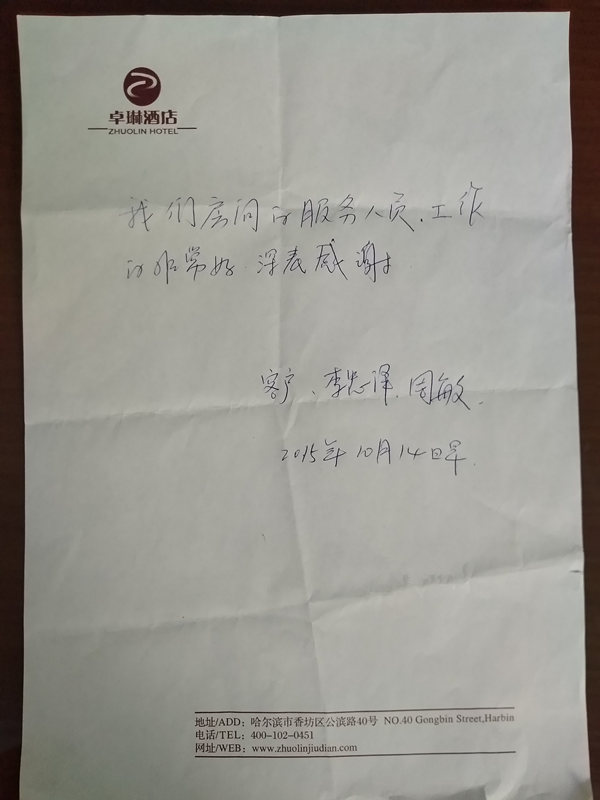 卓琳酒店
ZHUOLIN HOTEL
我们房间的服务人员、工作
的非常好、深表感谢
客户、李忠译、周敏、
2015年10月14日早.
地址/ADD：哈尔滨市香坊区公滨路40号 NO.40 Gongbin Street,Harbin
电话/TEL：400-102-0451
网址/WEB：www.zhuolinjiudian.com